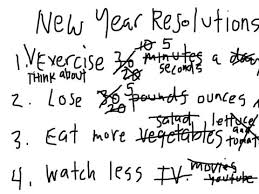 New Year Resolutions
10 5
1. ∨ Exercise 30 minutes a day
Think about 20 seconds
2. Lose 30 5 pounds ounces
20 1
salad lettuce
3. Eat more vegetables and
tomato
movies
4. Watch less T.V. youtube